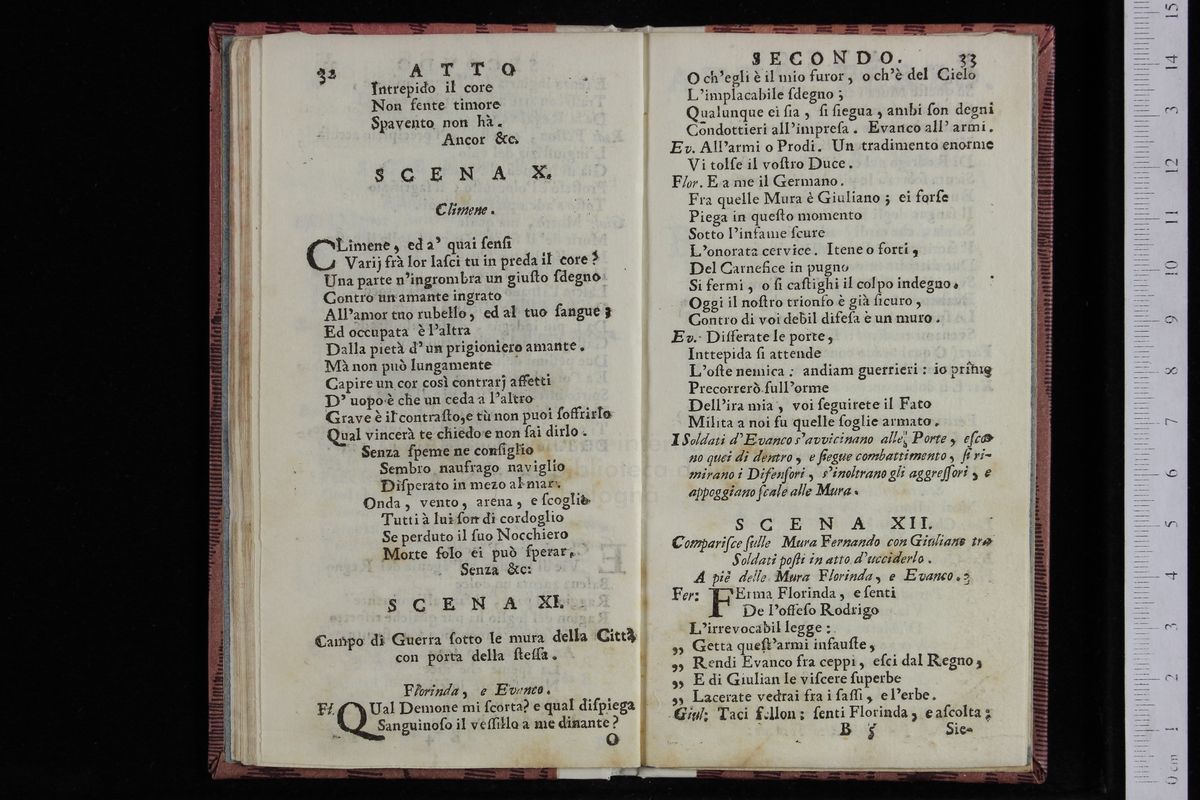 32 ATTO
Intrepido il core
Non ſente timore
Spavento non hà.
Ancor &c.
SCENA X.
Climene.
CLimene, ed a' quai ſenſi
Varij frà lor laſci tu in preda il core?
Una parte n'ingrombra un giuſto ſdegno
Contro un amante ingrato
All'amor tuo rubello, ed al tuo ſangue;
Ed occupata è l'altra
Dalla pietà d'un prigioniero amante.
Mà non può lungamente
Capire un cor così contrarj affetti
D'uopo è che un ceda a l'altro
Grave è il contraſto, e tù non puoi ſoffrirlo
Qual vincerà te chiedo e non ſai dirlo.
Senza ſpeme ne conſiglio
Sembro naufrago naviglio
Diſperato in mezo al mar.
Onda, vento, arena, e ſcoglio
Tutti à lui ſon di cordoglio
Se perduto il ſuo Nocchiero
Morte ſolo ei può ſperar.
Senza &c:
SCENA XI.
Campo di Guerra ſotto le mura della Città
con porta della ſteſſa.
Florinda, e Evanco.
Fl. QUal Demone mi ſcorta? e qual diſpiega
Sanguinoſo il veſſillo a me dinante?
O
SECONDO. 33
O ch'egli è il mio furor, o ch'è del Cielo
L'implacabile ſdegno;
Qualunque ei ſia, ſi ſiegua, ambi ſon degni
Condottieri all'impreſa. Evanco all'armi.
Ev. All'armi o Prodi. Un tradimento enorme
Vi tolſe il voſtro Duce.
Flor. E a me il Germano.
Fra quelle Mura è Giuliano; ei forſe
Piega in queſto momento
Sotto l'infame ſcure
L'onorata cervice. Itene o forti,
Del Carnefice in pugno
Si fermi, o ſi caſtighi il colpo indegno.
Oggi il noſtro trionfo è già ſicuro,
Contro di voi debil difeſa è un muro.
Ev. Diſſerate le porte,
Inttepida ſi attende
L'oſte nemica: andiam guerrieri: io primo
Precorrerò ſull'orme
Dell'ira mia, voi ſeguirete il Fato
Milita a noi fu quelle ſoglie armato.
I Soldati d'Evanco s'avvicinano alle Porte, eſco-
no quei di dentro, e ſiegue combattimento, ſi ri-
mirano i Difenſori, s'inoltrano gli aggreſſori, e
appoggiano ſcale alle Mura.
SCENA XII.
Compariſce ſulle Mura Fernando con Giuliano tra
Soldati poſti in atto d'ucciderlo.
A piè delle Mura Florinda, e Evanco.
Fer: FErma Florinda, e ſenti
De l'offeſo Rodrigo
L'irrevocabil legge:
„ Getta queſt'armi infauſte,
„ Rendi Evanco fra ceppi, eſci dal Regno,
„ E di Giulian le viſcere ſuperbe
„ Lacerate vedrai fra i ſaſſi, e l'erbe.
Giul: Taci fellon: ſenti Florinda, e aſcolta;
B 5 Sie-